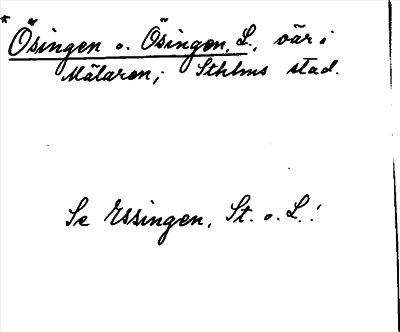 * Ösingen o. Ösingen, L., öar i
Mälaren; Sthlms stad.
Se Essingen, St. o. L.!